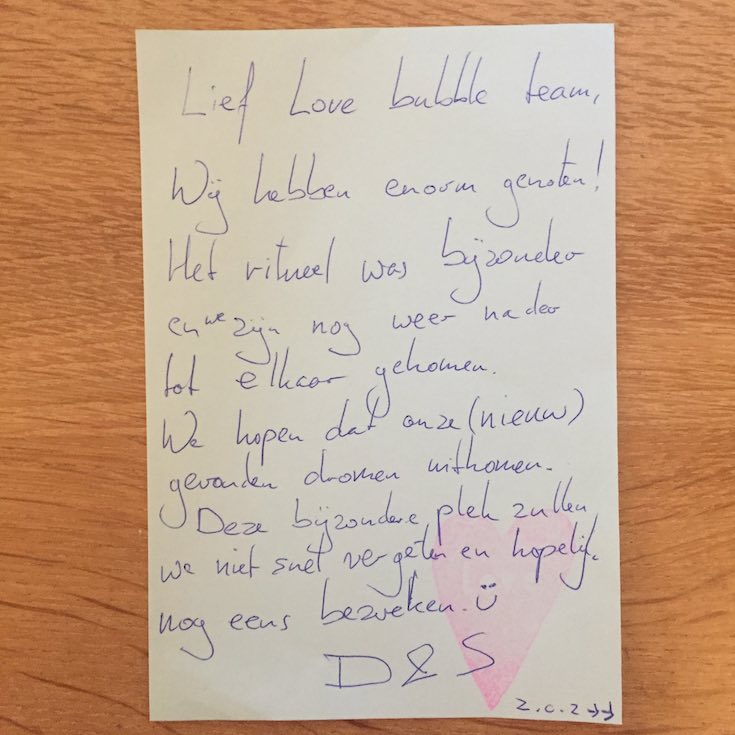 Lief Love bubble team,
Wij hebben enorm genoten!
Het ritueel was bijzonder
en we zijn nog weer nader
tot elkaar gekomen.
We hopen dat onze (nieuw)
gevonden dromen uitkomen.
Deze bijzondere plek zullen
we niet snel vergeten en hopelijk
nog eens bezoeken.
D & S